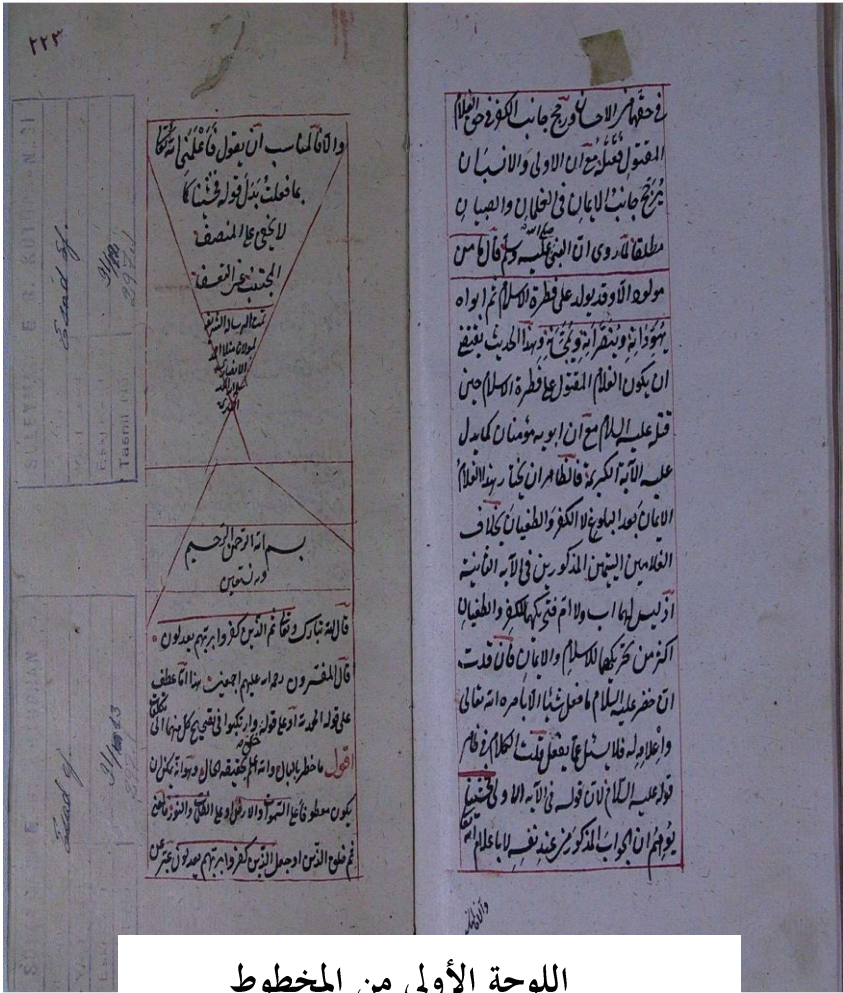 في حقهما من الاحسان ورجح جانب الكفر في حق الغلام
المقتول فقتله مع ان الاولى والانسب ان
يرجح جانب الايمان في الغلمان والصبيان
مطلقا لما روى ان النبي صلى الله عليه وسلم قال ما من
مولود الا وقد يولد على فطرة الاسلام ثم ابواه
يهودانه وينصرانه ويمجسانه وهذا الحديث يقتضي
ان يكون الغلام المقتول على فطرة الاسلام حين
قتله عليه السلام مع ان ابويه مؤمنان كما يدل
عليه الآية الكريمة فالظاهر ان يختار هذا الغلام
الايمان بعد البلوغ لا الكفر والطغيان بخلاف
الغلامين اليتيمين المذكورين في الآية الثانية
اذ ليس لهما اب ولا ام للكفر والطغيان
اكثر من للاسلام والايمان فان قلت
ان خضر عليه السلام ما فعل شيئا الا بامره الله تعالى
واعلامه له فلا يسئل عما يفعل قلت الكلام في ظاهر
قوله عليه السلام لان قوله في الآية الاولى فخشينا
يوهم ان الجواب المذكور من عند نفسه لا باعلام الله تعالى
والا فالمناسب
٢٢٣
والا فالمناسب ان يقول فاعلمني الله تعالى
بما فعلت بدل قوله فخشينا كما
لا يخفى على المنصف
المجتنب عن التعسف
تمت الرسالة الشريفة
لمولانا
بسم الله الرحمن الرحيم
وبه نستعين
قال الله تبارك وتعالى ثم الذين كفروا بربهم يعدلون
قال المفسرون رحمة الله عليهم اجمعين هذا اما عطف
على قوله الحمد لله او على قوله خلق وارتكبوا في تصحيح كل منهما الى تكلفات
اقول ما خطر بالبال والله اعلم بحقيقة الحال وهو انه يمكن ان
يكون معطوفا على السموات والارض او على الظلمات والنور فالمعنى
ثم خلق الذين او جعل الذين كفروا بربهم يعدلون عبر عن
Esad ef.
Tasnif No.
Esad ef.
اللوحة الأولى من المخطوط